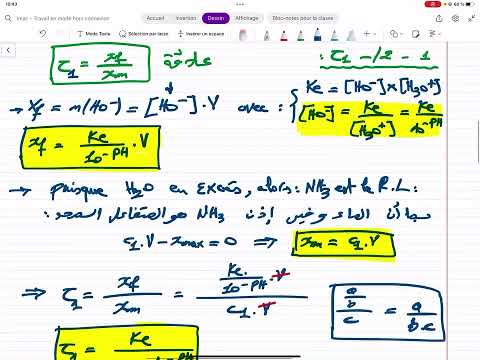 10:43
Inar – Travail en mode hors connexion
60 %
Accueil Insertion Dessin Affichage Bloc-notes pour la classe
Mode Texte Sélection par lasso Insérer un espace
τ1 = xf/xm علاقة : τ1 -/2 - 1
→ xf = n(HO⁻) = [HO⁻] . V avec : { Ke = [HO⁻] × [H3O⁺]
[HO⁻] = Ke/[H3O⁺] = Ke/10^-pH
xf = Ke/10^-pH . V
→ puisque H2O en Excès, alors : NH3 est le R.L :
بما أن الماء وفير إذن NH3 هو المتفاعل المحد :
C1 . V - xmax = 0 ⟹ xm = C1 . V
⟹ τ1 = xf/xm = (Ke/10^-pH . V)/(C1 . V)
(a/b)/c = a/(b.c)
τ1 = Ke